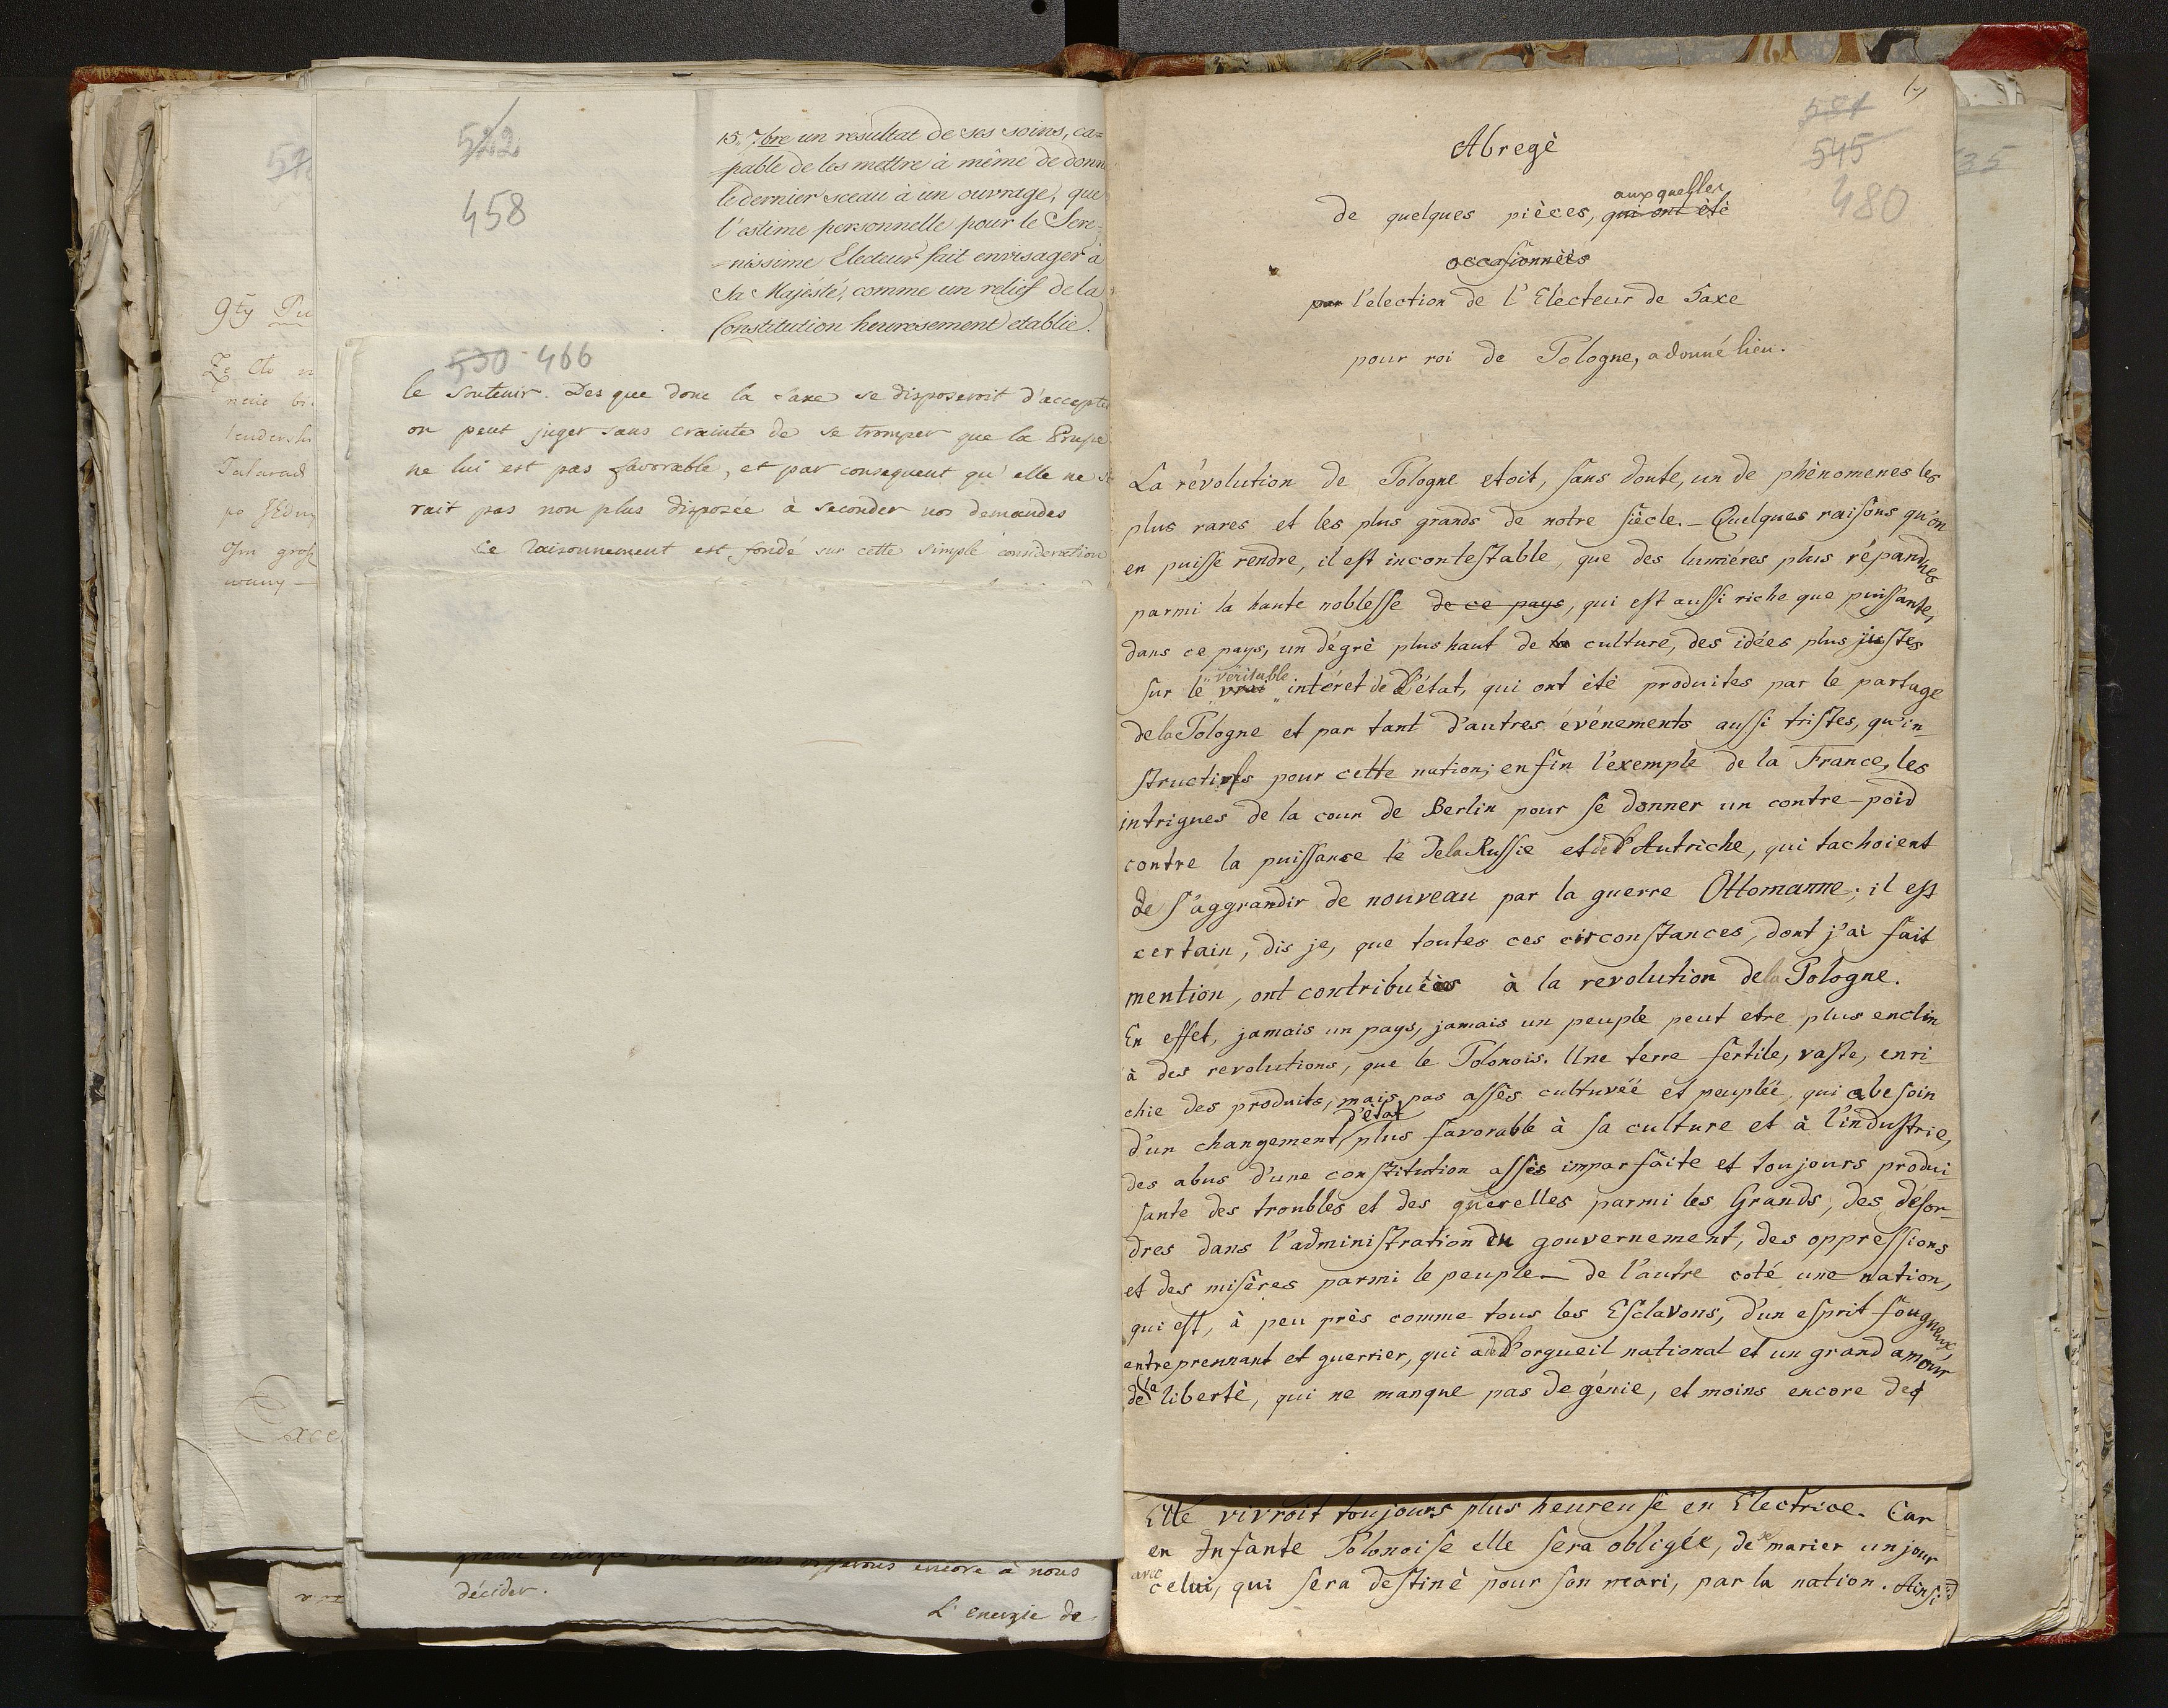 522
458
15. 7bre un resultat de ses soins, ca=
pable de les mettre à même de donn
le dernier sceau à un ouvrage, que
l'estime personnelle pour le Sere=
=nissime Electeur fait envisager à
Sa Majesté, comme un relief de la
Constitution heureusement etablie.
530 - 466
le soutenir. Des que donc la Saxe se disposeroit d'accepte
on peut juger sans crainte de se tromper que la Prusse
ne lui est pas favorable, et par consequent qu'elle ne se
rait pas non plus disposée à seconder nos demandes
Ce raisonnement est fondé sur cette simple consideration
nous encore à nous
décider.
L'energie de
Abregè
545
480
de quelques pièces, auxquelles qui ont été
occasionnées
par l'election de l'Electeur de Saxe
pour roi de Pologne, a donné lieu.
La révolution de Pologne etoit, sans doute, un de phènomenes les
plus rares et les plus grands de notre siècle. - Quelques raisons qu'on
en puisse rendre, il est incontestable, que des lumiéres plus répandues
parmi la haute noblesse de ce pays, qui est aussi riche que puissante,
dans ce pays, un dégrè plus haut de la culture, des idées plus justes
sur le vrai véritable intéret de l'état, qui ont été produites par le partage
de la Pologne et par tant d'autres événements aussi tristes, qu'in
structifs pour cette nation; enfin l'exemple de la France, les
intrigues de la cour de Berlin pour se donner un contre-poid
contre la puissance de la Russie et d'Autriche, qui tachoient
de s'aggrandir de nouveau par la guerre Ottomanne; il est
certain, dis je, que toutes ces circonstances, dont j'ai fait
mention, ont contribuées à la revolution de la Pologne.
En effet, jamais un pays, jamais un peuple peut etre plus enclin
à des revolutions, que le Polonois. Une terre fertile, vaste, enri
chie des produits, mais pas assès cultuvéé et peupléé, qui a besoin
d'un changement d'état plus favorable à sa culture et à l'industrie,
des abus d'une constitution assès imparfaite et toujours produi
sante des troubles et des querelles parmi les Grands, des désor-
dres dans l'administration du gouvernement, des oppressions
et des misères parmi le peuple - de l'autre coté une nation,
qui est, à peu près comme tous les Esclavons, d'un esprit fougueux,
entreprennant et guerrier, qui a de l'orgueil national et un grand amour
de la libertè, qui ne manque pas de génie, et moins encore de
Elle vivroit toujours plus heureuse en Electrice. Car
en Infante Polonoise elle sera obligée, de se marier un jour
avec celui, qui sera destiné pour son mari, par la nation. Ainsi